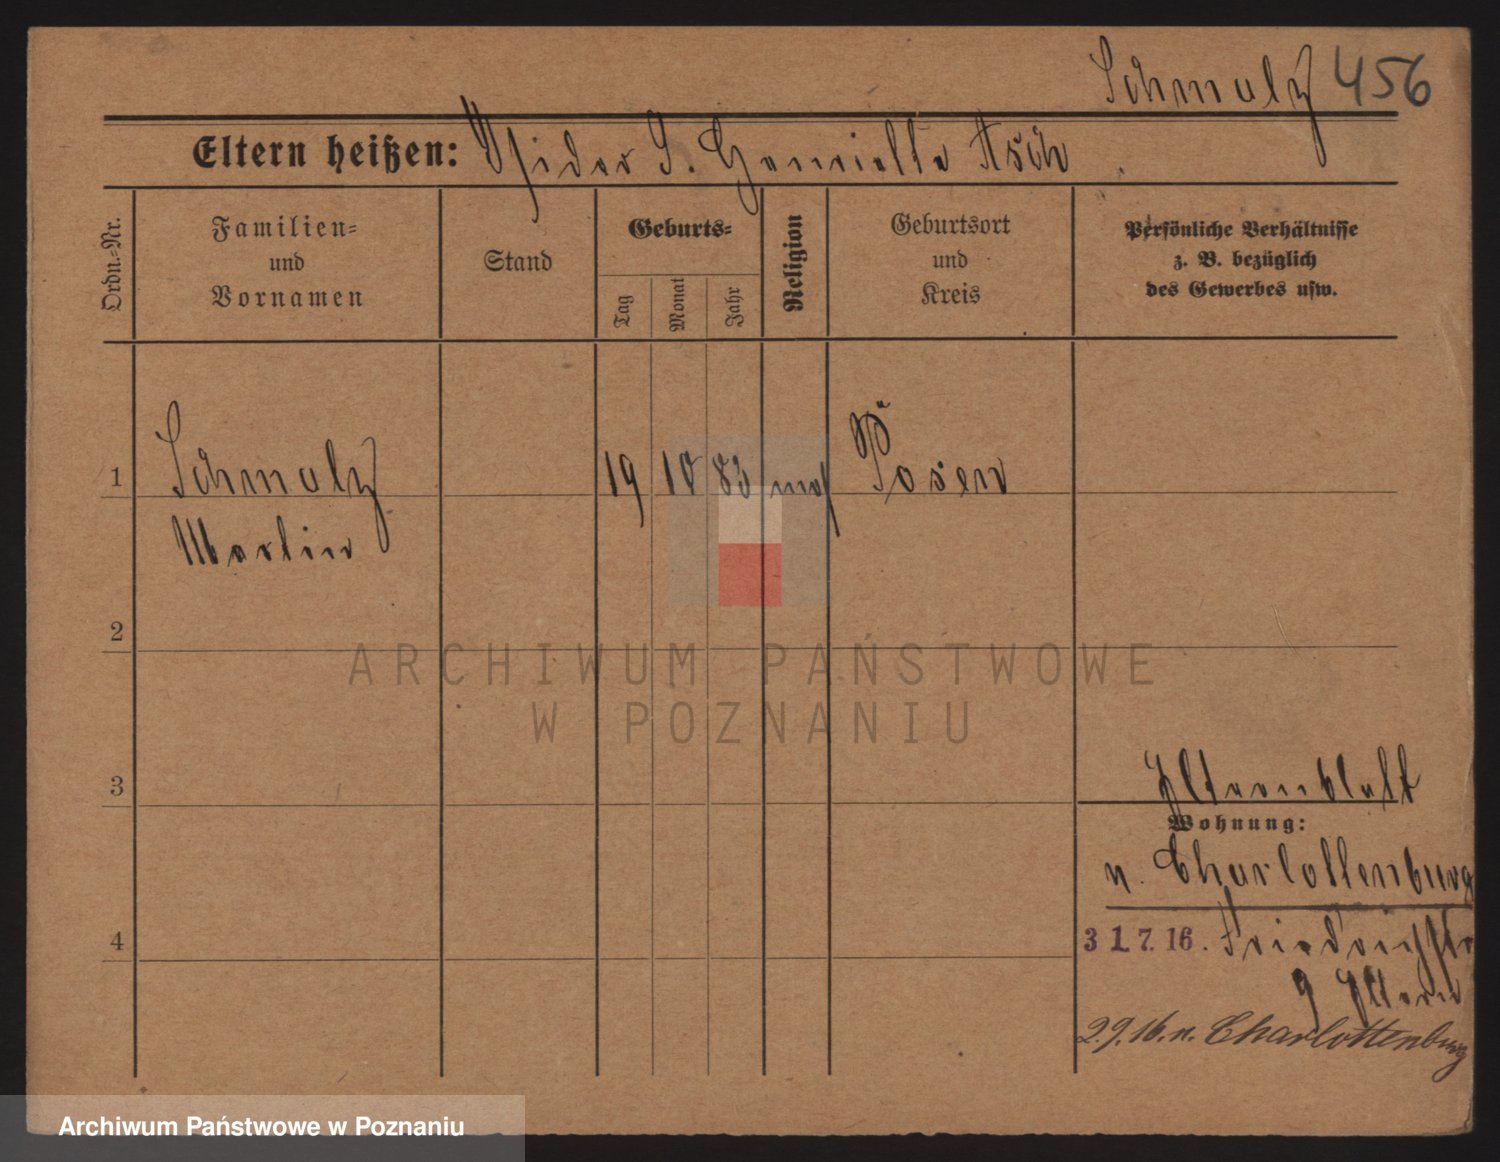 Schmulz 456
Eltern heißen: Isidor S. Henriette Asch
Ordn.-Nr.
Familien-
und
Vornamen
Stand
Geburts-
Tag
Monat
Jahr
Religion
Geburtsort
und
Kreis
Persönliche Verhältnisse
z. B. bezüglich
des Gewerbes usw.
1 Schmulz 19 10 83 mos Posen
Martin
2
ARCHIWUM PAŃSTWOWE
W POZNANIU
3
Elternblatt
Wohnung:
n. Charlottenburg
4
31.7.16. Friedrichstr
9 Eltern
2.9.16. n. Charlottenburg
Archiwum Państwowe w Poznaniu